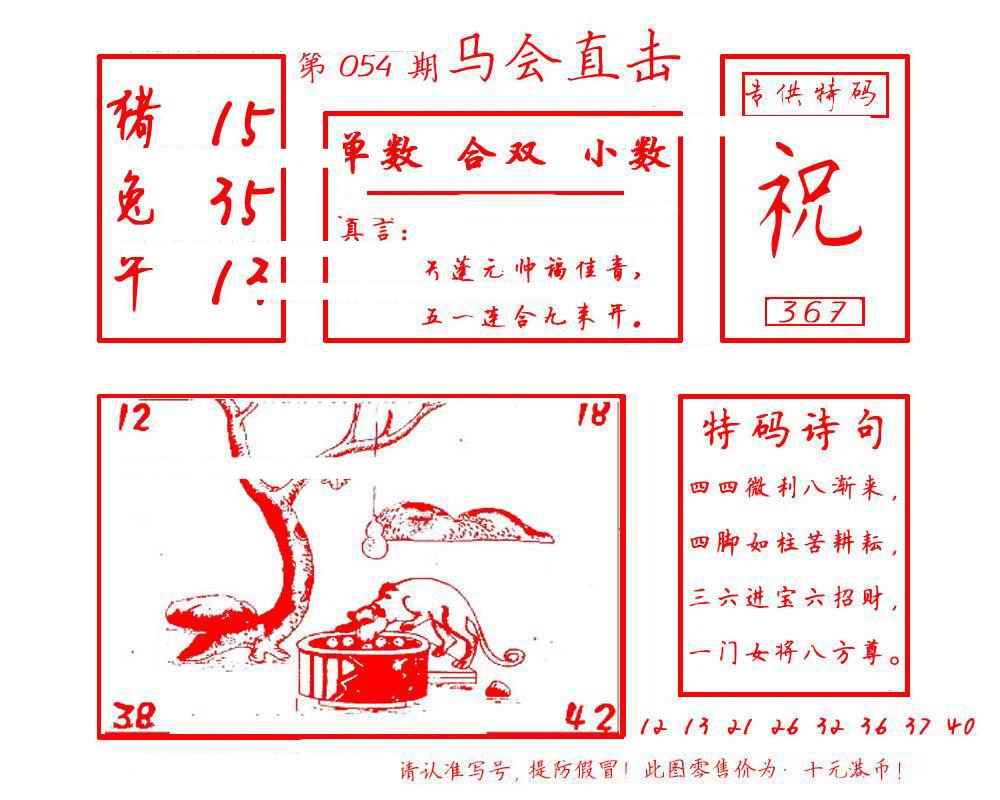 第 054 期 马会直击
猪 15
兔 35
12
单数 合双 小数
真言：
天蓬元帅福佳音，
五一连合九来开。
专供特码
祝
367
12 18
38 42
特码诗句
四四微利八渐来，
四脚如柱苦耕耘，
三六进宝六招财，
一门女将八方尊。
12 13 21 26 32 36 37 40
请认准写号，提防假冒！此图零售价为·十元港币！